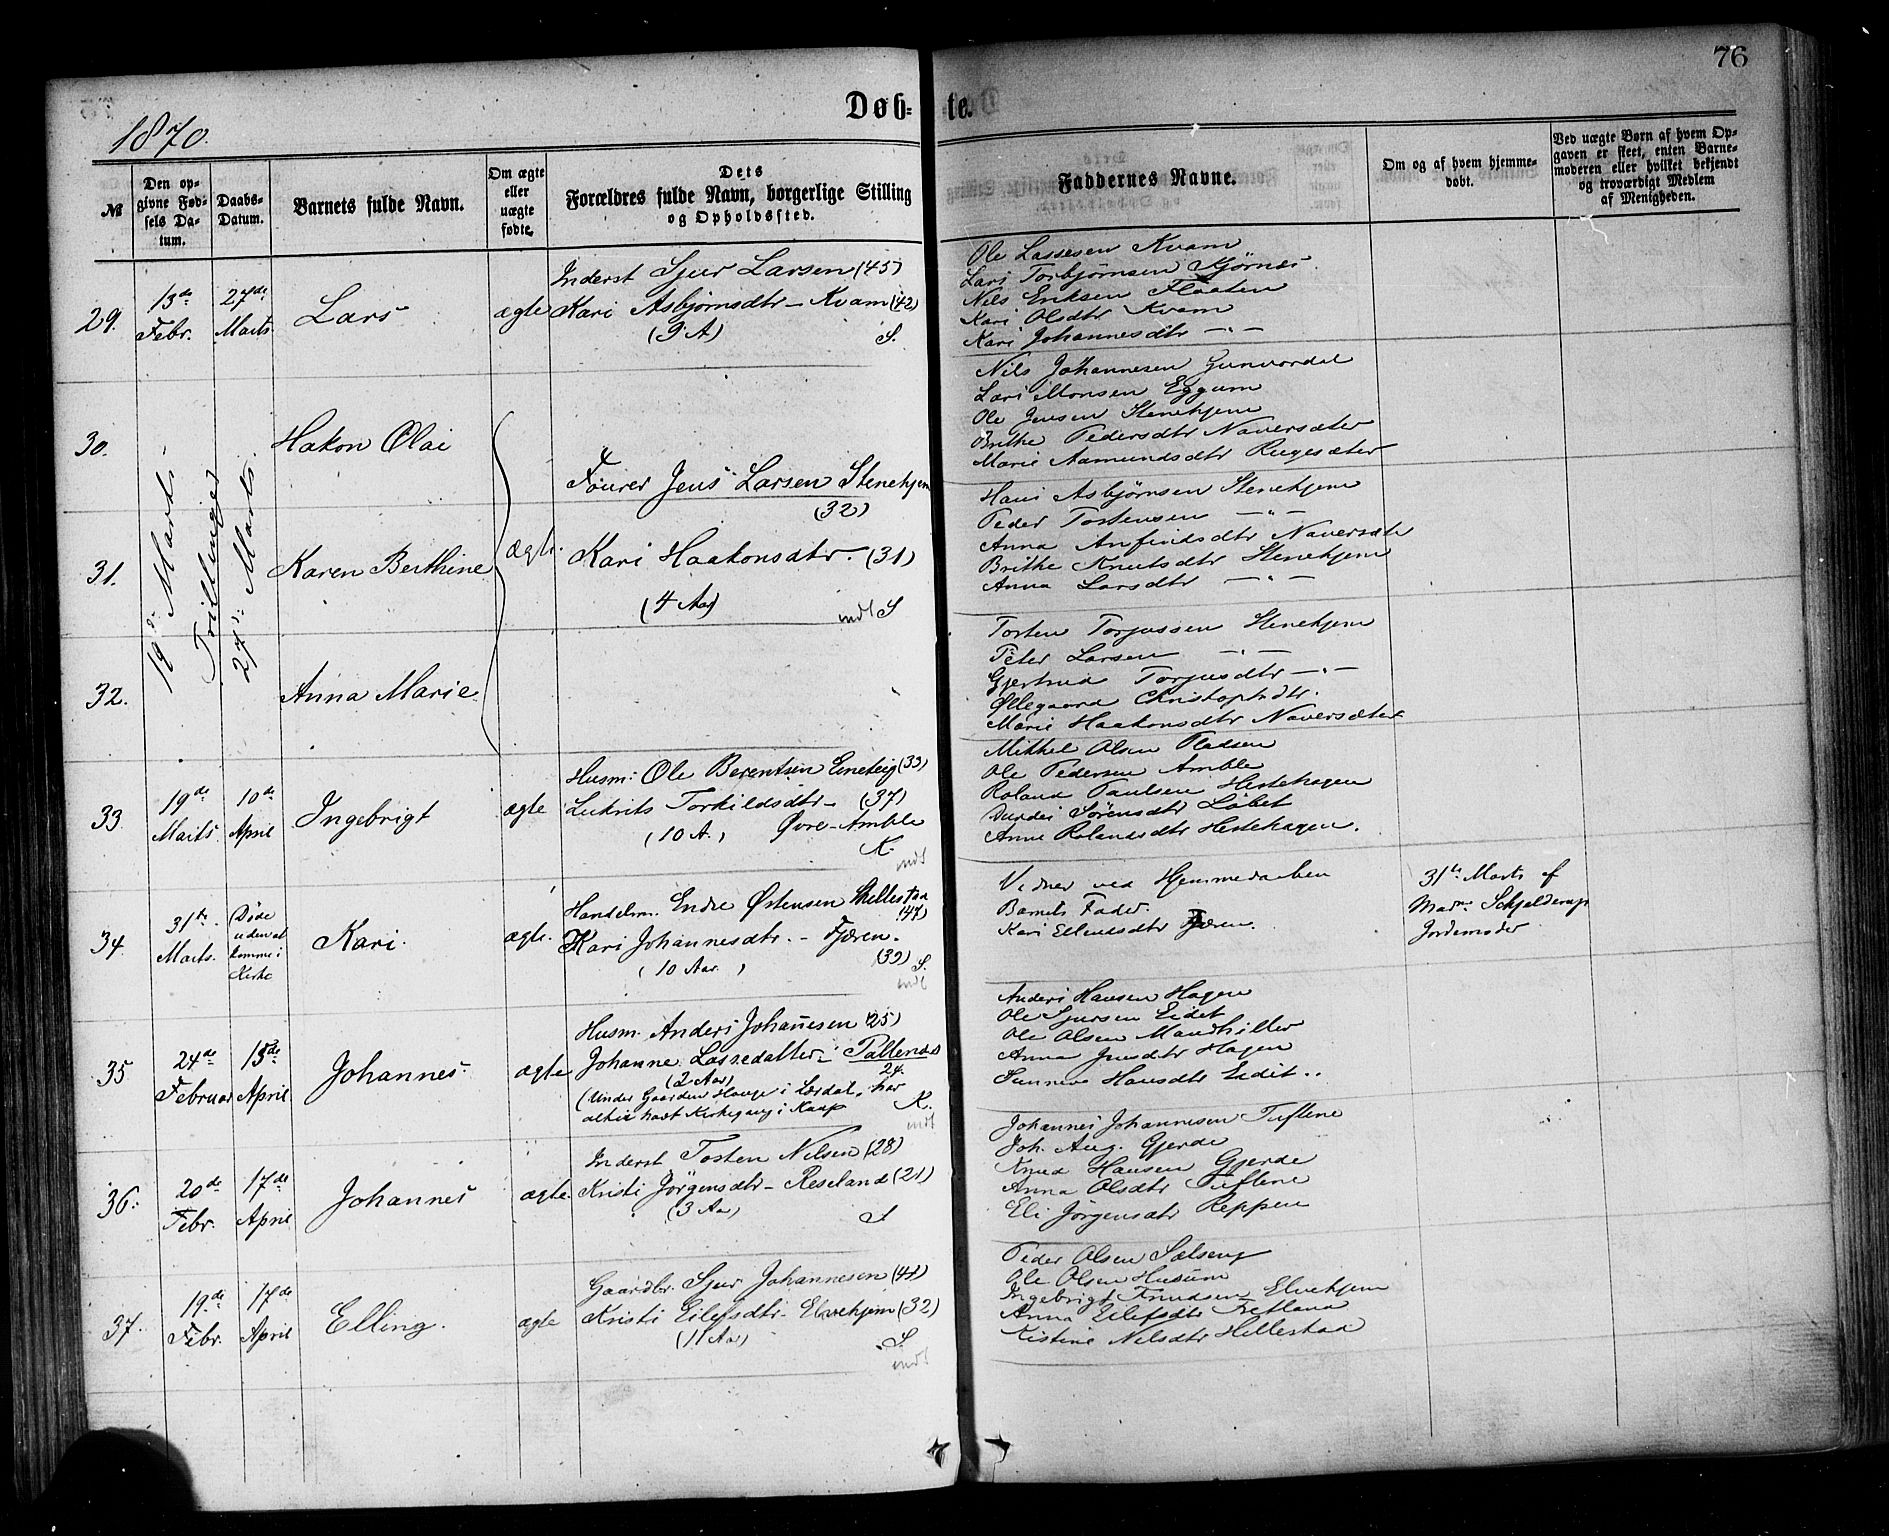 76
Døb-te.
1870.
№
Den opgivne Fødsels Datum.
Daabs-Datum.
Barnets fulde Navn.
Om ægte eller uægte født.
Dets Forældres fulde Navn, borgerlige Stilling og Opholdssted.
Faddernes Navne.
Om og af hvem hjemmedøbt.
Ved uægte Børn af hvem Opgaven er skeet, enten Barnemoderen eller hvilket bekjendt og troværdigt Medlem af Menigheden.
29.
13de Febr.
27de Marts
Lars
ægte
Inderst Sjur Larsen (45)
Kari Asbjørnsdtr - Kvam (42)
(9 A)
S.
Ole Lassesen Kvam
Lars Torbjørnsen Gjørnes
Nils Eriksen Flaaten
Kari Olsdtr Kvam
Kari Johannesdtr -"-
30.
Hakon Olai
Nils Johannesen Gunvordal
Lars Monsen Eggum
Ole Jensen Stenehjem
Brithe Pedersdtr Naversæter
Marie Aamundsdtr Rugesæter
19de Marts
Trillinger
27de Marts.
31.
Karen Berthine
ægte
Fourer Jens Larsen Stenehjem
(32)
Kari Haakonsdtr. (31)
(4 Aar)
indt S
Hans Asbjørnsen Stenehjem
Peder Tostensen -"-
Anna Anfindsdtr Naversæte
Brithe Knutsdtr Stenehjem
Anna Larsdtr -"-
32.
Anna Marie
Torsten Torjussen Stenehjem
Peter Larsen -"-
Gjertrud Torjusdtr -"-
Øllegaard Christophdtr.
Marie Haakonsdtr Naversæter
33.
19de Marts.
10de April
Ingebrigt
ægte
Husm: Ole Berentsen Eneteig (33)
Lukrits Torkildsdtr - (37)
(10 A.) Øvre-Amble
K.
indt
Mikkel Olsen Fladsen
Ole Pedersen Amble
Roland Paulsen Hestehagen
Durdei Sørensdtr Løbet
Anne Rolandsdtr Hestehagen.
34.
31te Marts.
Døde uden at komme i Kirke
Kari.
ægte.
Handelm. Endre Østensen Skellestad
(47)
Kari Johannesdtr. - Fjæren.
(39)
(10 Aar)
S.
indt
Vidner ved Hjemmedaaben
Barnets Fader.
Kari Ellendsdtr Fjæren.
31te Marts af
Madm Schjelderup
Jordemoder
35
24de Februar
15de April
Johannes.
ægte
Husm. Anders Johanesen (25)
Johanne Lassedatter - Pallendes
(2 Aar) 24.
(Under Gaarden Hauge i Lærdal, har
altid havt Kirkegang i Kaup
K.
indt
Anders Hansen Hagen
Ole Sjursen Eidet
Ole Olsen Mandhiller
Anna Jensdtr Hagen
Sunneva Hansdtr Eidet..
36.
20de Febr.
17de April
Johannes
ægte
Inderst Tosten Nilsen (28)
Kristi Jørgensdtr - Reseland (21)
(3 Aar)
S
Johannes Johannesen Tuftene
Joh. Aug. Gjerde
Knud Hansen Gjerde
Anna Olsdtr Tuftene
Eli Jørgensdtr Reppen
37.
19de Febr.
17de April
Elling.
ægte
Gaardbr. Sjur Johannesen (41)
Kristi Eilefsdtr - Elvehjem (32)
(11 Aar)
S.
indt
Peder Olsen Sælseng
Ole Olsen Husum
Ingebrigt Knudsen Elvehjem
Anna Eilefsdtr Tretland
Kistine Nilsdtr Hellestad